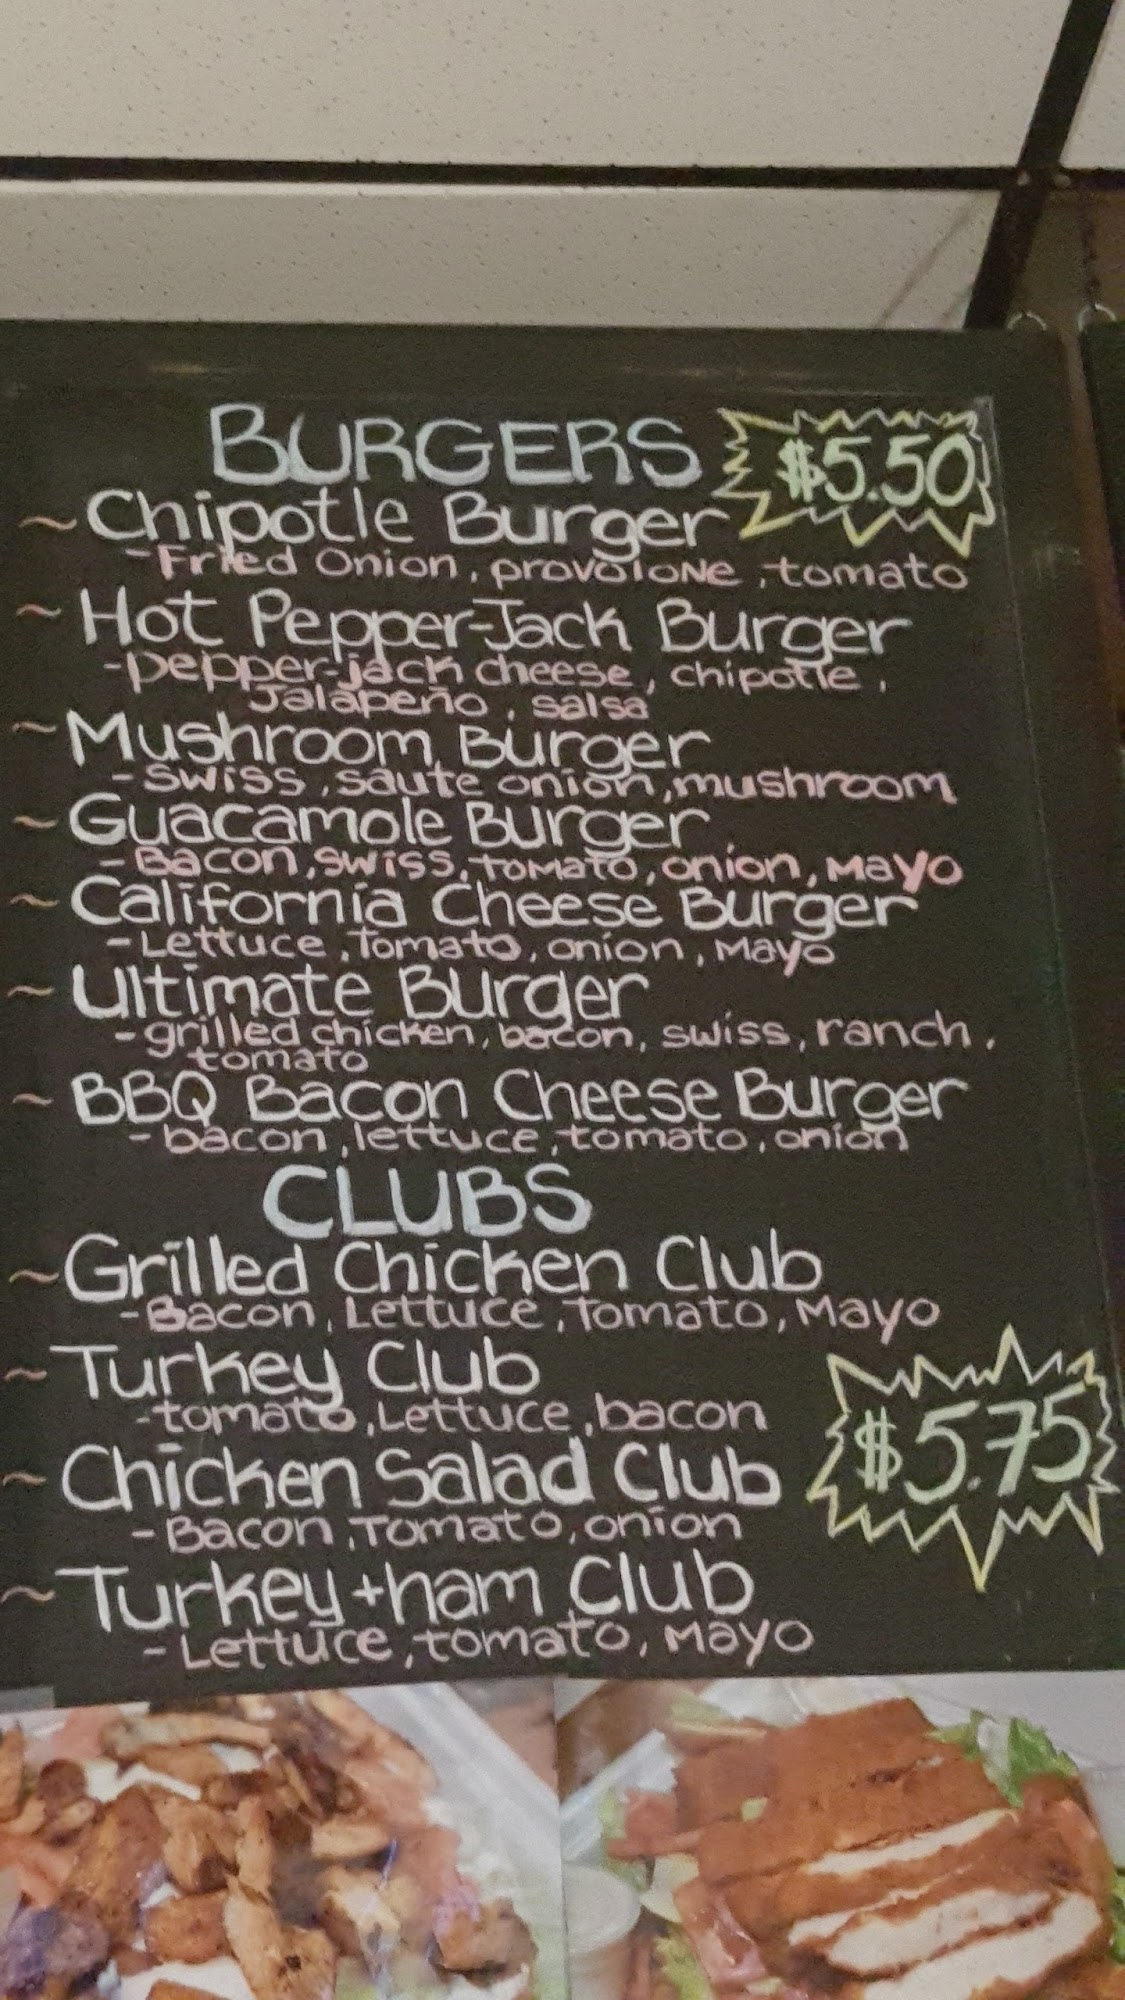 BURGERS $5.50
~ Chipotle Burger
- Fried Onion, provolone, tomato
~ Hot Pepper-Jack Burger
- pepper-jack cheese, chipotle,
Jalapeño, salsa
~ Mushroom Burger
- Swiss, saute onion, mushroom
~ Guacamole Burger
- Bacon, swiss, tomato, onion, Mayo
~ California Cheese Burger
- Lettuce, Tomato, onion, Mayo
~ Ultimate Burger
- grilled chicken, bacon, swiss, ranch,
tomato
~ BBQ Bacon Cheese Burger
- bacon, lettuce, tomato, onion
CLUBS
~ Grilled Chicken Club
- Bacon, Lettuce, Tomato, Mayo
~ Turkey Club
- tomato, Lettuce, bacon
$5.75
~ Chicken Salad Club
- Bacon, Tomato, onion
~ Turkey + ham Club
- Lettuce, tomato, Mayo